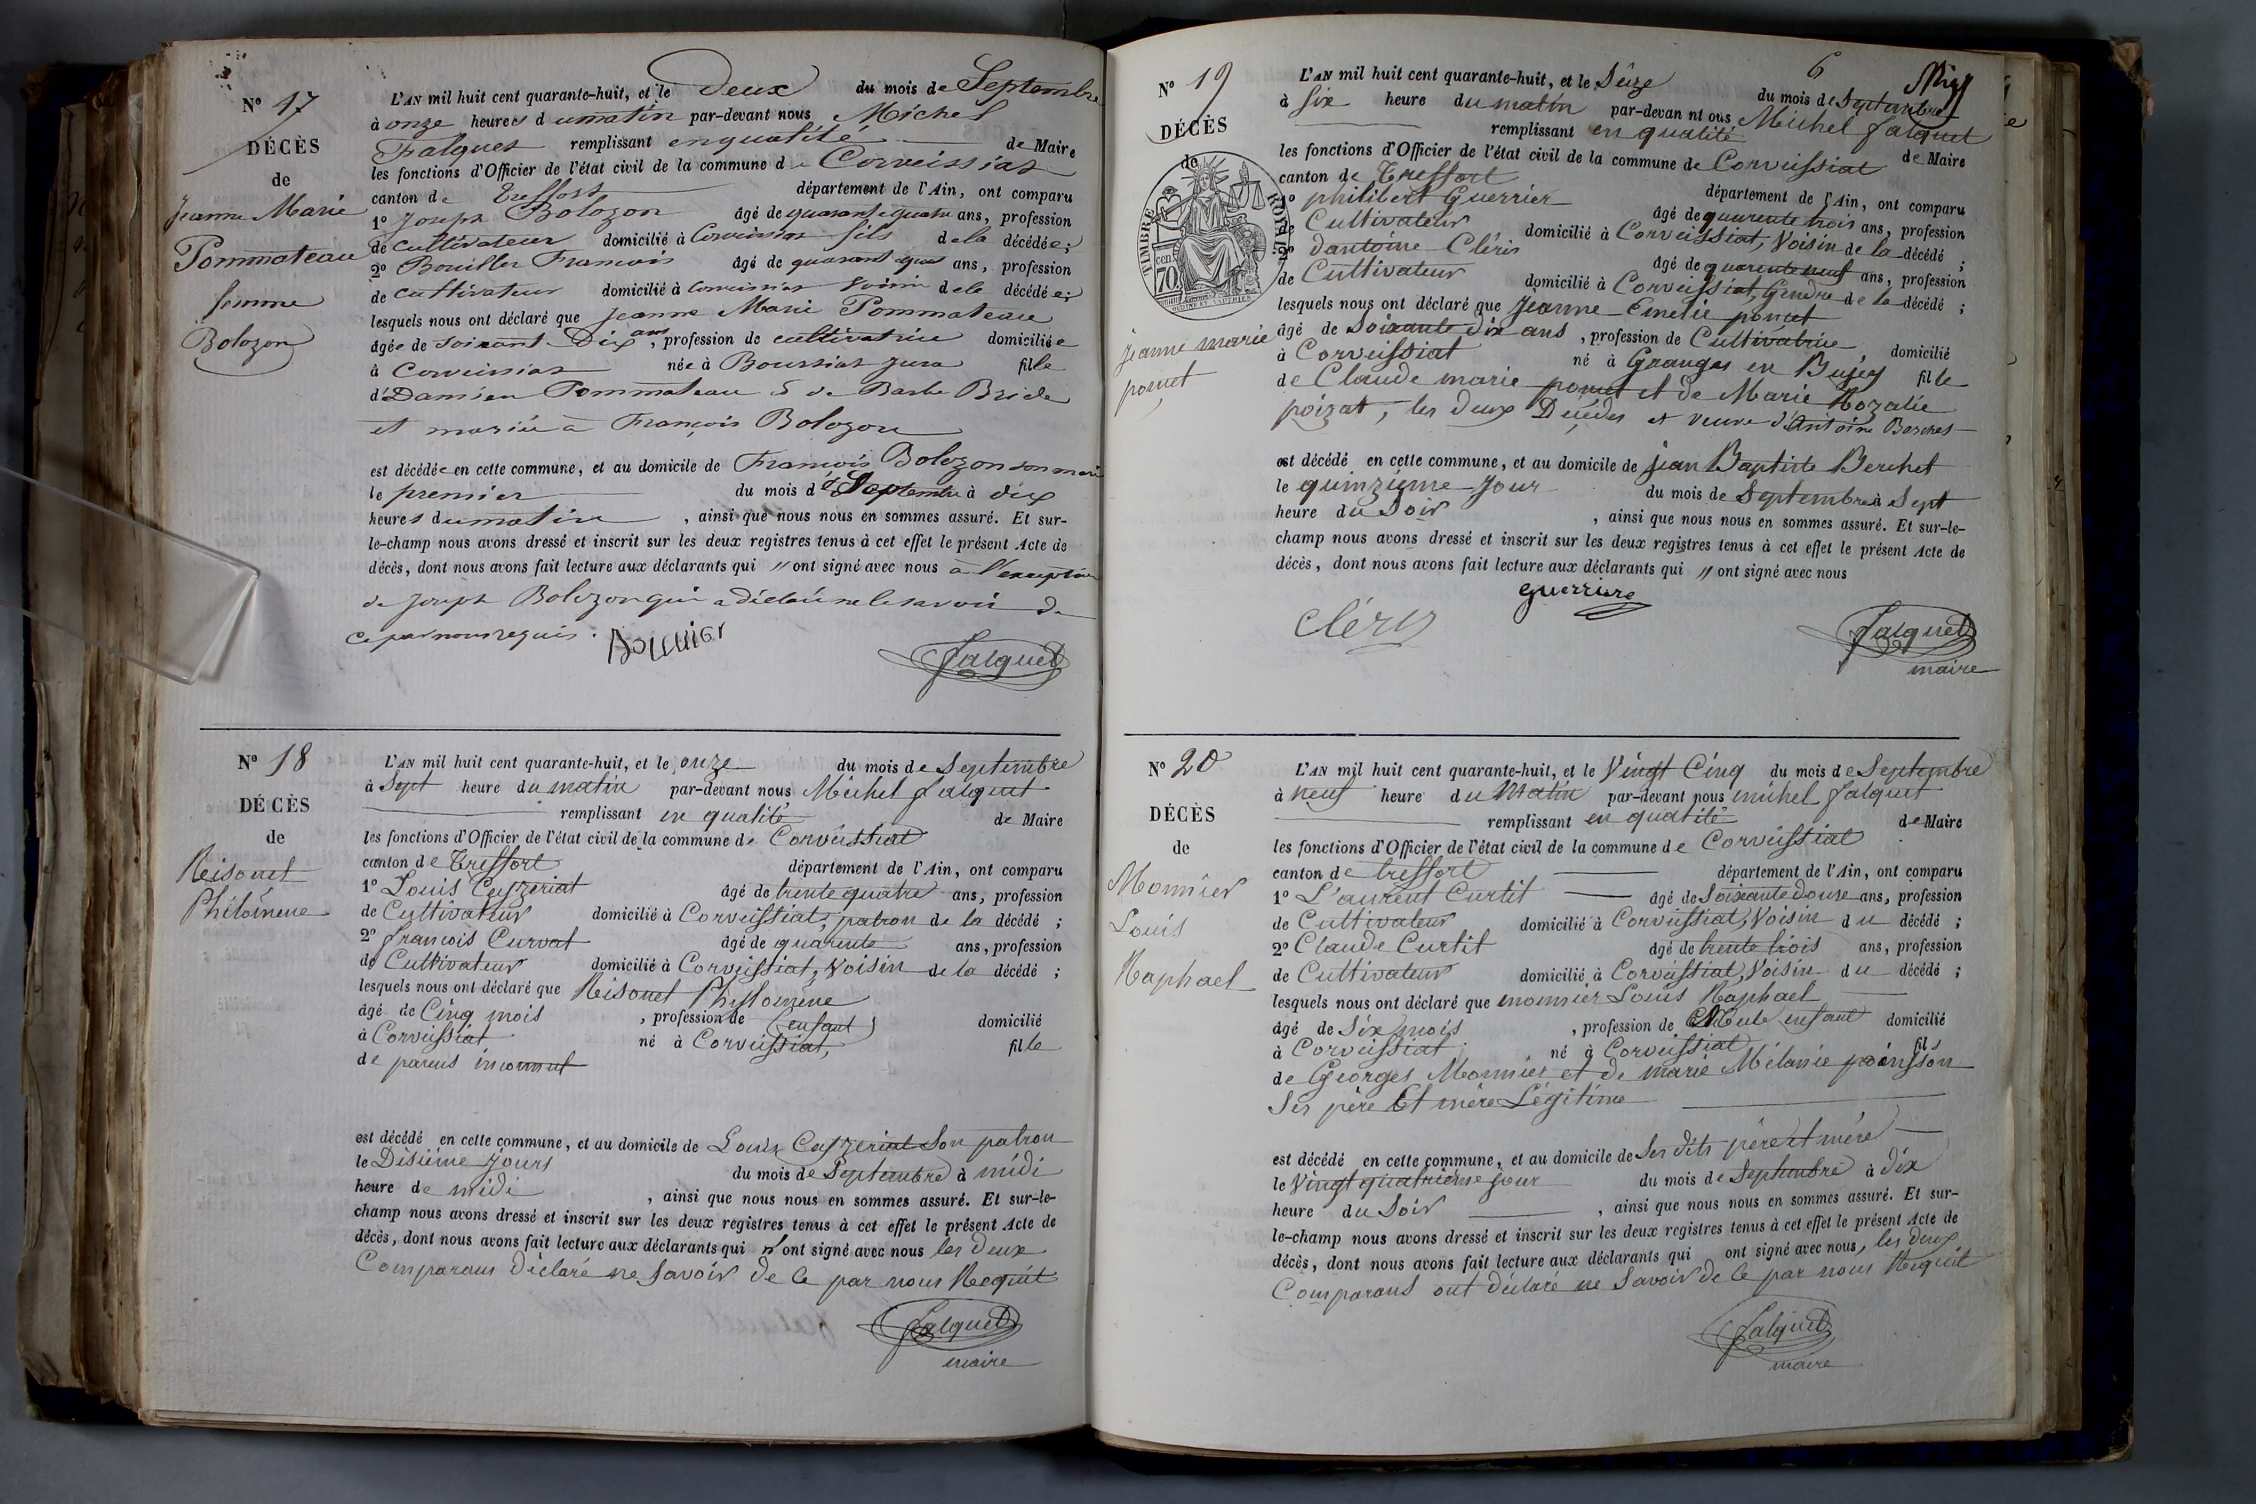 N° 17
DÉCÈS
de
Jeanne Marie
Pommateau
femme
Bolozon
L'AN mil huit cent quarante-huit, et le Deux du mois de Septembre
à onze heures du matin par-devant nous Michel
Falques remplissant en qualité de Maire
les fonctions d'Officier de l'état civil de la commune de Corveissiat
canton de Treffort département de l'Ain, ont comparu
1° Joseph Bolozon âgé de quarante quatre ans, profession
de cultivateur domicilié à Corveissiat fils de la décédée;
2° Bouiller Francois âgé de ans, profession
de cultivateur domicilié à Corveissiat voisin de la décédée;
lesquels nous ont déclaré que jeanne Marie Pommateau
âgée de soixant Dix ans, profession de cultivatrice domiciliée
à Corveissiat née à Boussiat Jura fille
d'Damien Pommateau & de Barbe Bride
et mariée à François Bolozon
est décédée en cette commune, et au domicile de Francois Bolozon son mari
le premier du mois de Septembre à dix
heures du matin, ainsi que nous nous en sommes assuré. Et sur-
le-champ nous avons dressé et inscrit sur les deux registres tenus à cet effet le présent Acte de
décès, dont nous avons fait lecture aux déclarants qui // ont signé avec nous à l'exception
de joseph Bolozon qui a déclaré ne le savoir de
ce par nous requis.
Falquet
N° 18
DÉCÈS
de
Reisonet
Philomène
L'AN mil huit cent quarante-huit, et le onze du mois de Septembre
à Sept heure du matin par-devant nous Michel falquet
remplissant en qualité de Maire
les fonctions d'Officier de l'état civil de la commune de Corveissiat
canton de Treffort département de l'Ain, ont comparu
1° Louis Cuzeriat âgé de trente quatre ans, profession
de Cultivateur domicilié à Corveissiat, patron de la décédé;
2° francois Curvat âgé de quarente ans, profession
de Cultivateur domicilié à Corveissiat, Voisin de la décédé;
lesquels nous ont déclaré que Reisonet Philomène
âgé de Cinq mois, profession de (enfant) domicilié
à Corveissiat né à Corveissiat, fille
de parens inconnut
est décédé en cette commune, et au domicile de Louis Cuzeriat Son patron
le Disiéme jours du mois de Septembre à midi
heure de midi, ainsi que nous nous en sommes assuré. Et sur-le-
champ nous avons dressé et inscrit sur les deux registres tenus à cet effet le présent Acte de
décès, dont nous avons fait lecture aux déclarants qui n'ont signé avec nous les deux
Comparans déclaré ne Savoir de ce par nous Requit
Falquet
maire
N° 19
DÉCÈS
de
TIMBRE ROYAL
70 cen
jeanne marie
poncet
6
L'AN mil huit cent quarante-huit, et le Séize du mois de Septembre
à Six heure du matin par-devant nous Michel falquet
remplissant en qualité de Maire
les fonctions d'Officier de l'état civil de la commune de Corveissiat
canton de Treffort département de l'Ain, ont comparu
1° philibert Guerrier âgé de quarente trois ans, profession
de Cultivateur domicilié à Corveissiat, Voisin de la décédé;
2° dantoine Cléris âgé de quarente neuf ans, profession
de Cultivateur domicilié à Corveissiat, Gendre de la décédé;
lesquels nous ont déclaré que Jeanne Emelie poncet
âgé de Soixante Dix ans, profession de Cultivatrice, domicilié
à Corveissiat né à Granges en Bujey fille
de Claude marie poncet et de Marie Rozalie
poizat, les deux Décédes et veuve d'Antoine Berches
est décédé en cette commune, et au domicile de jean Baptiste Berchet
le quinziéme jour du mois de Septembre à Sept
heure du Soir, ainsi que nous nous en sommes assuré. Et sur-le-
champ nous avons dressé et inscrit sur les deux registres tenus à cet effet le présent Acte de
décès, dont nous avons fait lecture aux déclarants qui // ont signé avec nous
guerriere
Cléris
Falquet
maire
N° 20
DÉCÈS
de
Monnier
Louis
Raphael
L'AN mil huit cent quarante-huit, et le Vingt Cinq du mois de Septembre
à neuf heure du Matin par-devant nous michel falquet
remplissant en qualité de Maire
les fonctions d'Officier de l'état civil de la commune de Corveissiat
canton de treffort département de l'Ain, ont comparu
1° L'aurent Curtit âgé de Soixante douze ans, profession
de Cultivateur domicilié à Corveissiat, Voisin du décédé;
2° Claude Curtit âgé de trente trois ans, profession
de Cultivateur domicilié à Corveissiat, Voisin du décédé;
lesquels nous ont déclaré que monnier Louis Raphael
âgé de Six mois, profession de enfant domicilié
à Corveissiat né à Corveissiat fils
de Georges Monnier et de marie Mélanie poinsson
Ses père Et mère Légitime
est décédé en cette commune, et au domicile de Ses dits père et mére
le Vingt quatriéme jour du mois de Septembre à dix
heure du Soir, ainsi que nous nous en sommes assuré. Et sur-
le-champ nous avons dressé et inscrit sur les deux registres tenus à cet effet le présent Acte de
décès, dont nous avons fait lecture aux déclarants qui ont signé avec nous, les deux
Comparans ont déclaré ne Savoir de ce par nous Requit
Falquet
maire